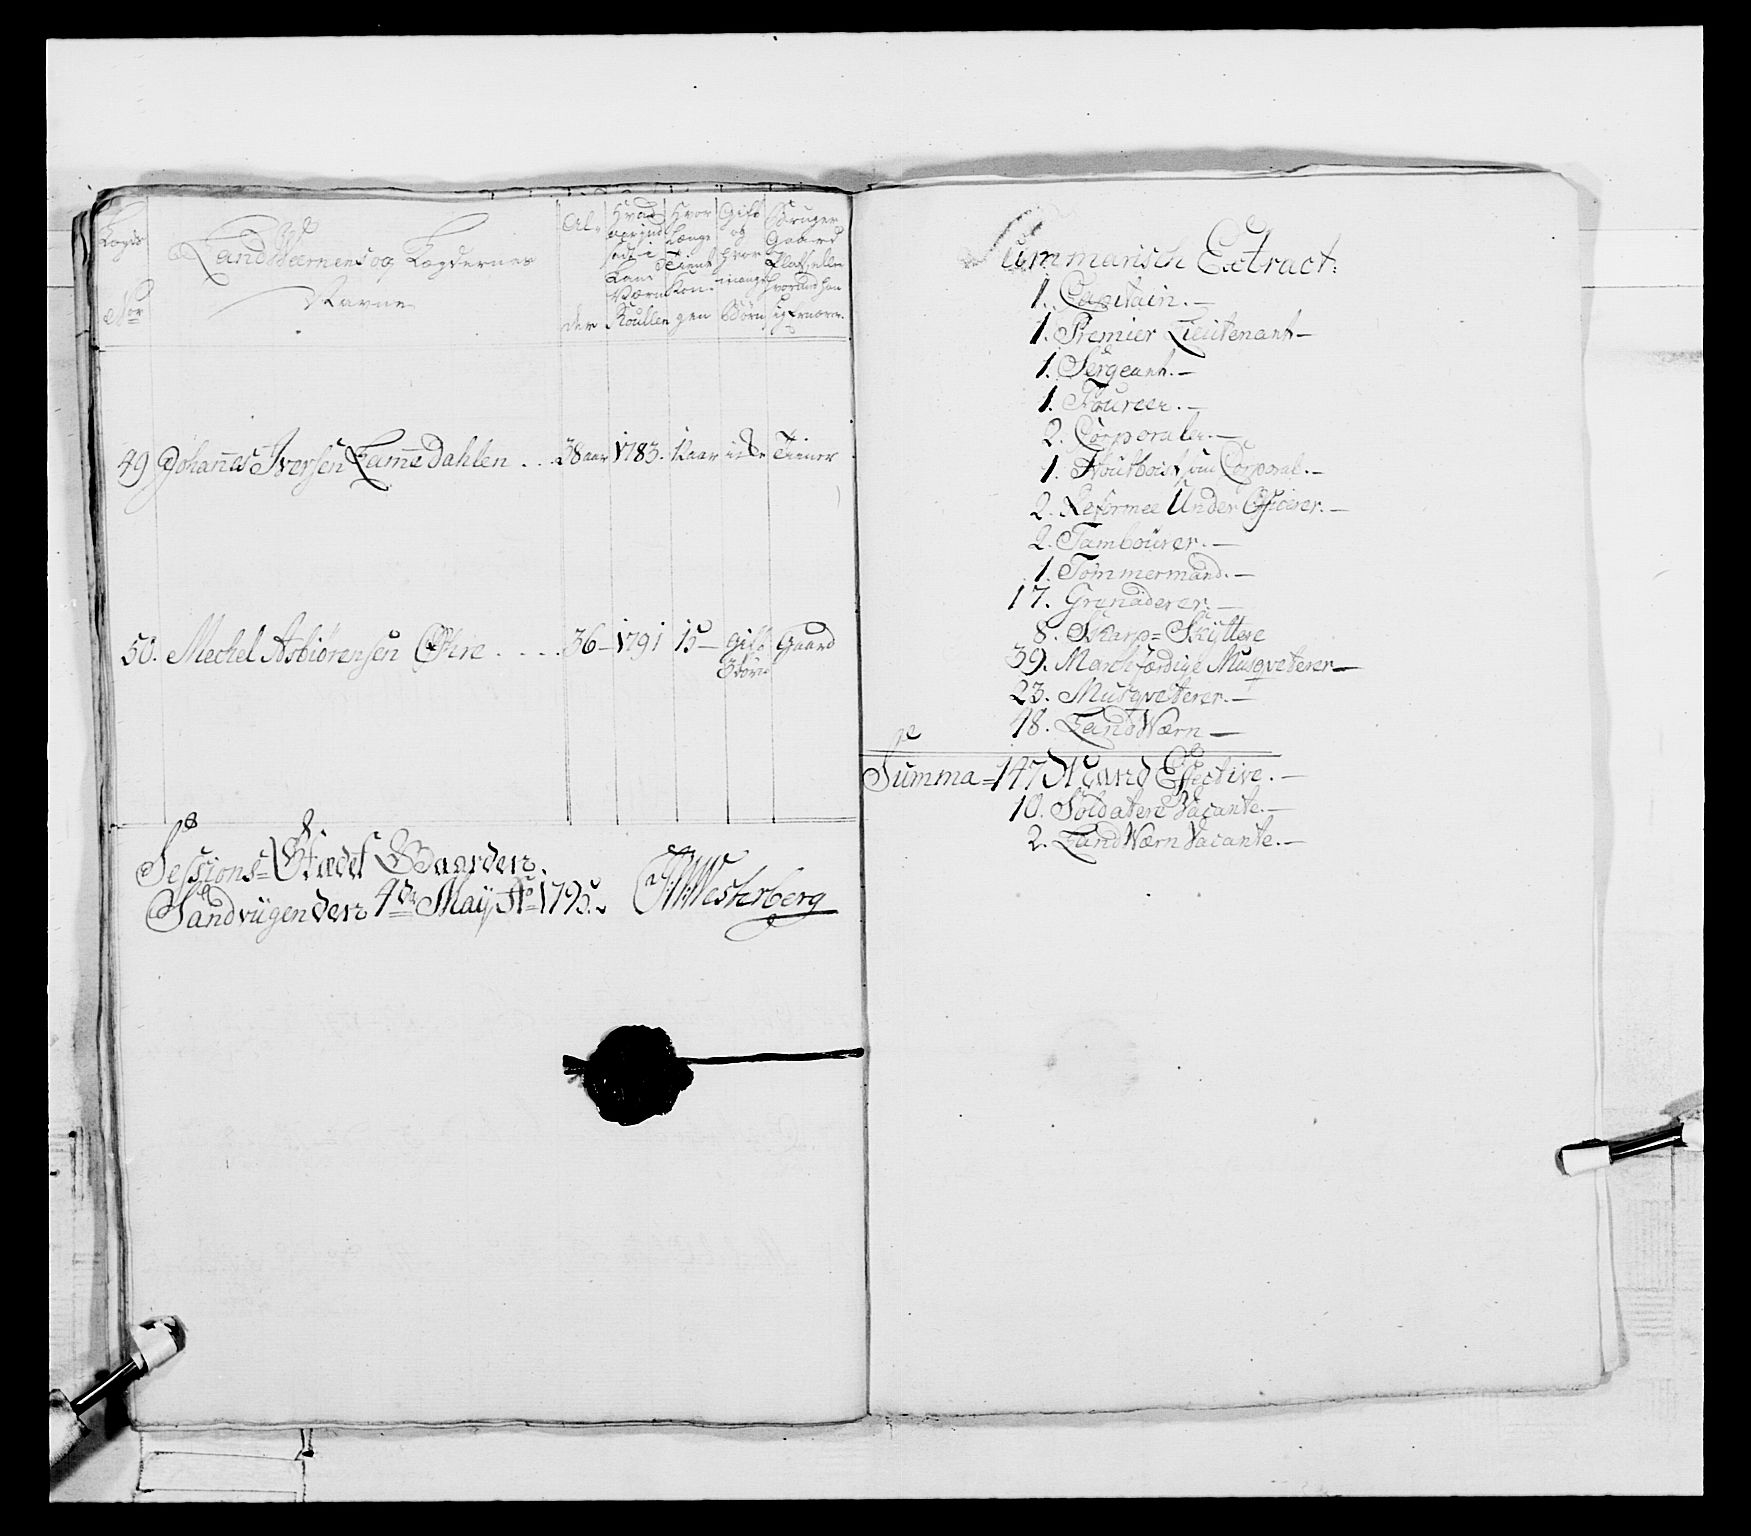 Lægds
No:
LandWærnens og Lægdernes
Navne
Al-
der
Hvad
Aar ind-
sadt i
Land
Værn
Roullen
Hvor
Længe
Tient
Kon-
gen
Gift
og
hvor
mange
Børn
Bruger
Gaard
Plads, eller
hvorved han
sig Ernærer.
49 Johannes Iversen Læmedahlen . . . 38 aar 1783. 12 aar Tiener
50. Mechel Asbiörensen Øfre . . . . 36 — 1791 15 — Gift Gaard
3 Börn
Sessions-Stædet Gaarden
Sandvügen den 4de Maÿ Ao 1795.
Westerberg
Summarisch Extract:
1. Capitain. —
1. Premier Lieutenant —
1. Sergeant. —
1. Foureer. —
2. Corporaler. —
1. Houtboist som Corporal. —
2. Reformee Under Officerer. —
2. Tambourer. —
1. Tömmermand. —
17. Grenäderer. —
8. Skarp= Skÿttere
39. Marchfærdige Musqveterer —
23. Musqveterer. —
48. LandWærn —
Summa = 147 Mand Effective. —
10. Soldatere Vacante. —
2. LandWærn Vacante. —